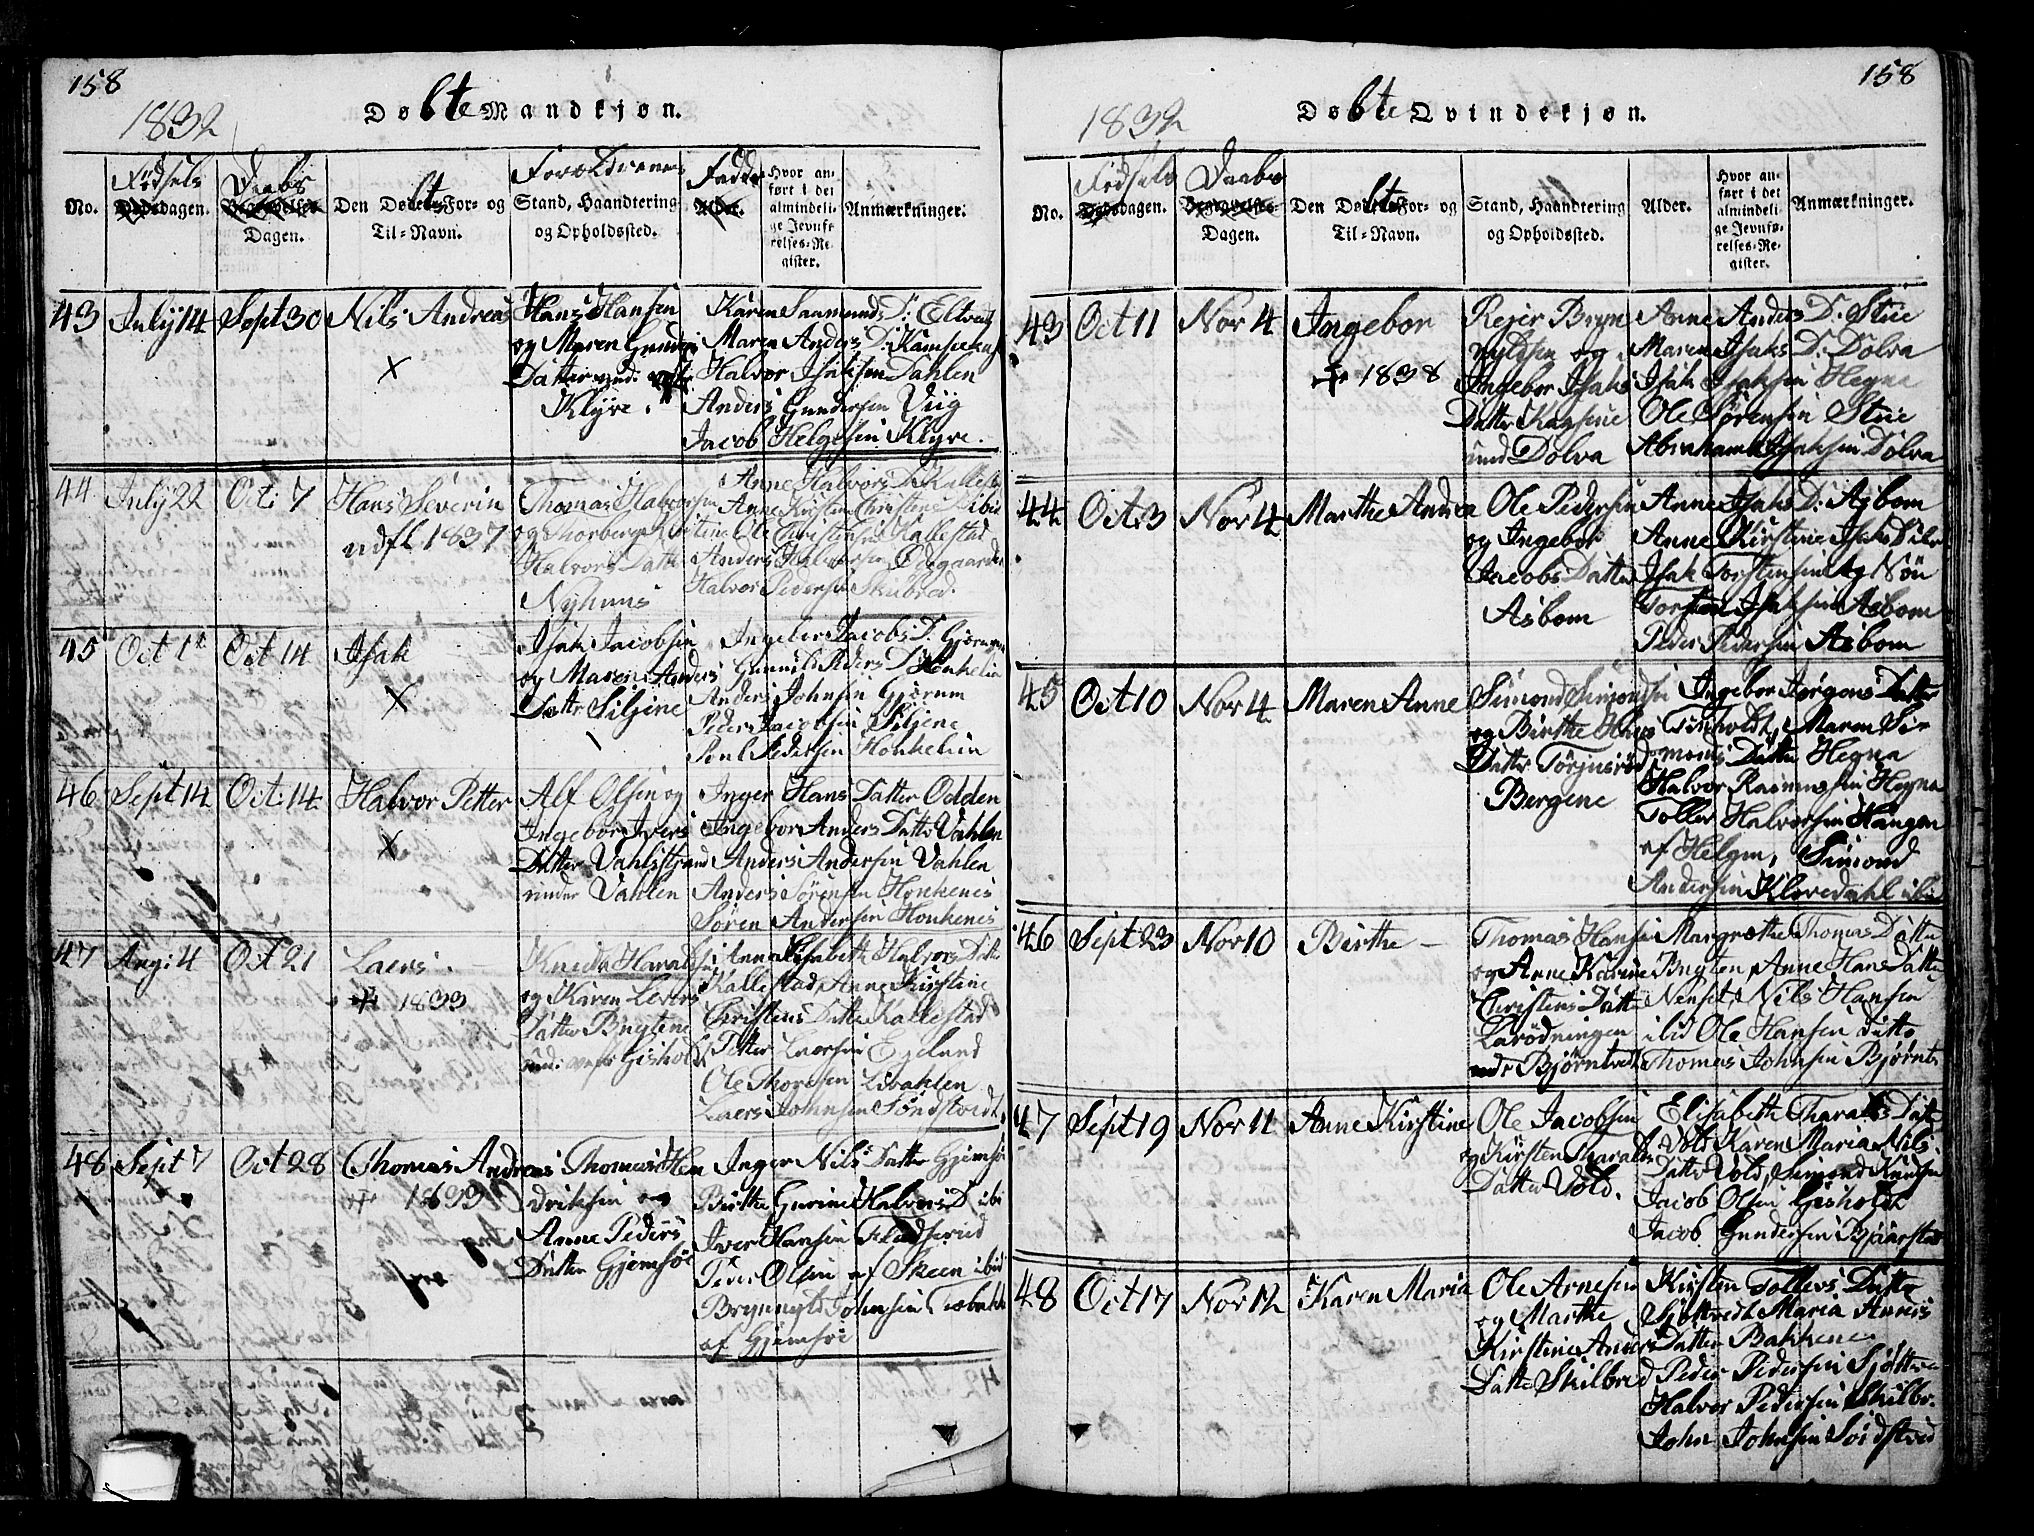 158
1832
Døbte Mandkjøn.
No.
Fødsels dagen.
Daabs Dagen.
Den Døbtes For- og Til-Navn.
Forældrenes Stand, Haandtering og Opholdssted.
Fadder
Hvor anført i det almindelige Jevnførelses-Register.
Anmærkninger.
43 July 14 Sept 30 Nils Andreas
×
Hans Hansen
og Maren Gunders
Datter und:
Klyve.
Karen Saamunds D:
Maren Anders D:
Halvor Isaksen Dahlen
Anders Gundersen Viig
Jacob Helgesen Klyve.
44 July 22 Oct: 7 Hans Severin
udfl 1837
Thomas Halvorsen
og Thorberg Kirstine
Halvors Datter
Nyhuus
Anne Halvors D: Kallestad
Anne Kirstine Christens ibid
Ole Christensen Kallestad
Anders Halvorsen Ødegaarden
Halvor Pedersen Skilbred.
45 Oct 1t Oct 14 Isak
×
Isak Jacobsen
og Maren Anders
Datter Siljine
Ingebor Jacobs D: Gjerum
Gunnil Peders D: Honkelin
Anders Johnsen Gjerum
Peder Jacobsen Siljene
Poul Pedersen Honkelin
46 Sept 14 Oct: 14 Halvor Petter
×
Alf Olsen og
Ingebor Ivers
Datter Vahlsstrand
under Vahlen
Inger Hans Datter Odden
Ingebor Anders Datter Vahlen
Anders Andersen Vahlen
Anders Sørensen Honkenes
Søren Andersen Honkenes
47 Aug: 4 Oct 21 Laers.
+ 1833
Knud Haraldsen
og Karen Levers
Datter Bugtene
und: Gisholt
Anne Elisabeth Halvors Datter
Kallestad, Anne Kirstine
Christens Datter Kallestad
Petter Laersen Egeland
Ole Thoresen Lidahlen
Laers Johnsen Søndstvedt
48 Sept 7 Oct 28 Thomas Andreas
+ 1833
Thomas Hen
driksen og
Anne Peders
Datter Gjemsøe
Inger Nils Datter Gjemsøe
Birthe Gurine Halvors D: ibid
Iver Hansen
Peder Olsen af Skeen ibid
Brynnyld Johnsen
af Gjemsøe
158
1832
Døbte Qvindekjøn.
No.
Fødsels dagen.
Daabs Dagen.
Den Døbtes For- og Til-Navn.
Stand, Haandtering og Opholdssted.
Alder.
Hvor anført i det almindelige Jevnførelses-Register.
Anmærkninger.
43 Oct 11 Nov 4 Ingebor
+ 1838
Rejer Bryn
nyldsen og
Ingebor Isaks
Datter
und Dolva
Anne Anders D: Stue
Maren Isaks D: Dolva
Isak Isaksen Hegna
Ole Sørensen Stue
Abraham Isaksen Dolva
44 Oct: 3 Nov 4 Marthe Andrea
Ole Pedersen
og Ingebor
Jacobs Datter
Asbom
Anne Isaks D: Asbom
Anne Kirstine Isaks D ibid
Isak Torstensen
Torsten Isaksen Asbom
Peder Pedersen Asbom
45 Oct 10 Nov 4 Maren Anne
Simond Simondsen
og Birthe Hans
Datter Torjusrød
Bergene
Ingebor Jørgens Datter
Maren Si-
monds Datter Hegna
Halvor Rasmussen Hegna
Toller Halvorsen Haugen
af Helgen, Simond
Andersen Kloredahl ibid
46 Sept 23 Nov 10 Birthe
Thomas Hansen
og Anne Karine
Christens Datter
Larødningen
undr Bjørntvedt
Margrethe Thomas Datter
Bugten Anne Hans Datter
Nenset Nils Hansen
ibid Ole Hansen ditto
Thomas Johnsen Bjørnt
47 Sept 19 Nov 11 Anne Kirstine
Ole Jacobsen
og Kirsten Haralds
Datter Vold.
Elisabeth Haralds Datt
Vold Karen Maria Nils
Datter Vold, Simond Knudsen
Jacob Olsen Gisholdt
Jacob Gundersen Bjaarstad
48 Oct 17 Nov 12 Karen Maria
Ole Arnesen
og Marthe
Kirstine Anders
Datter Skilbred
Kirsten Tollevs Datter
Sjøtvedt Maria Annis
Datter Bakkene
Peder Pedersen Sjøttve
Halvor Pedersen Skilbr.
John Johnsen